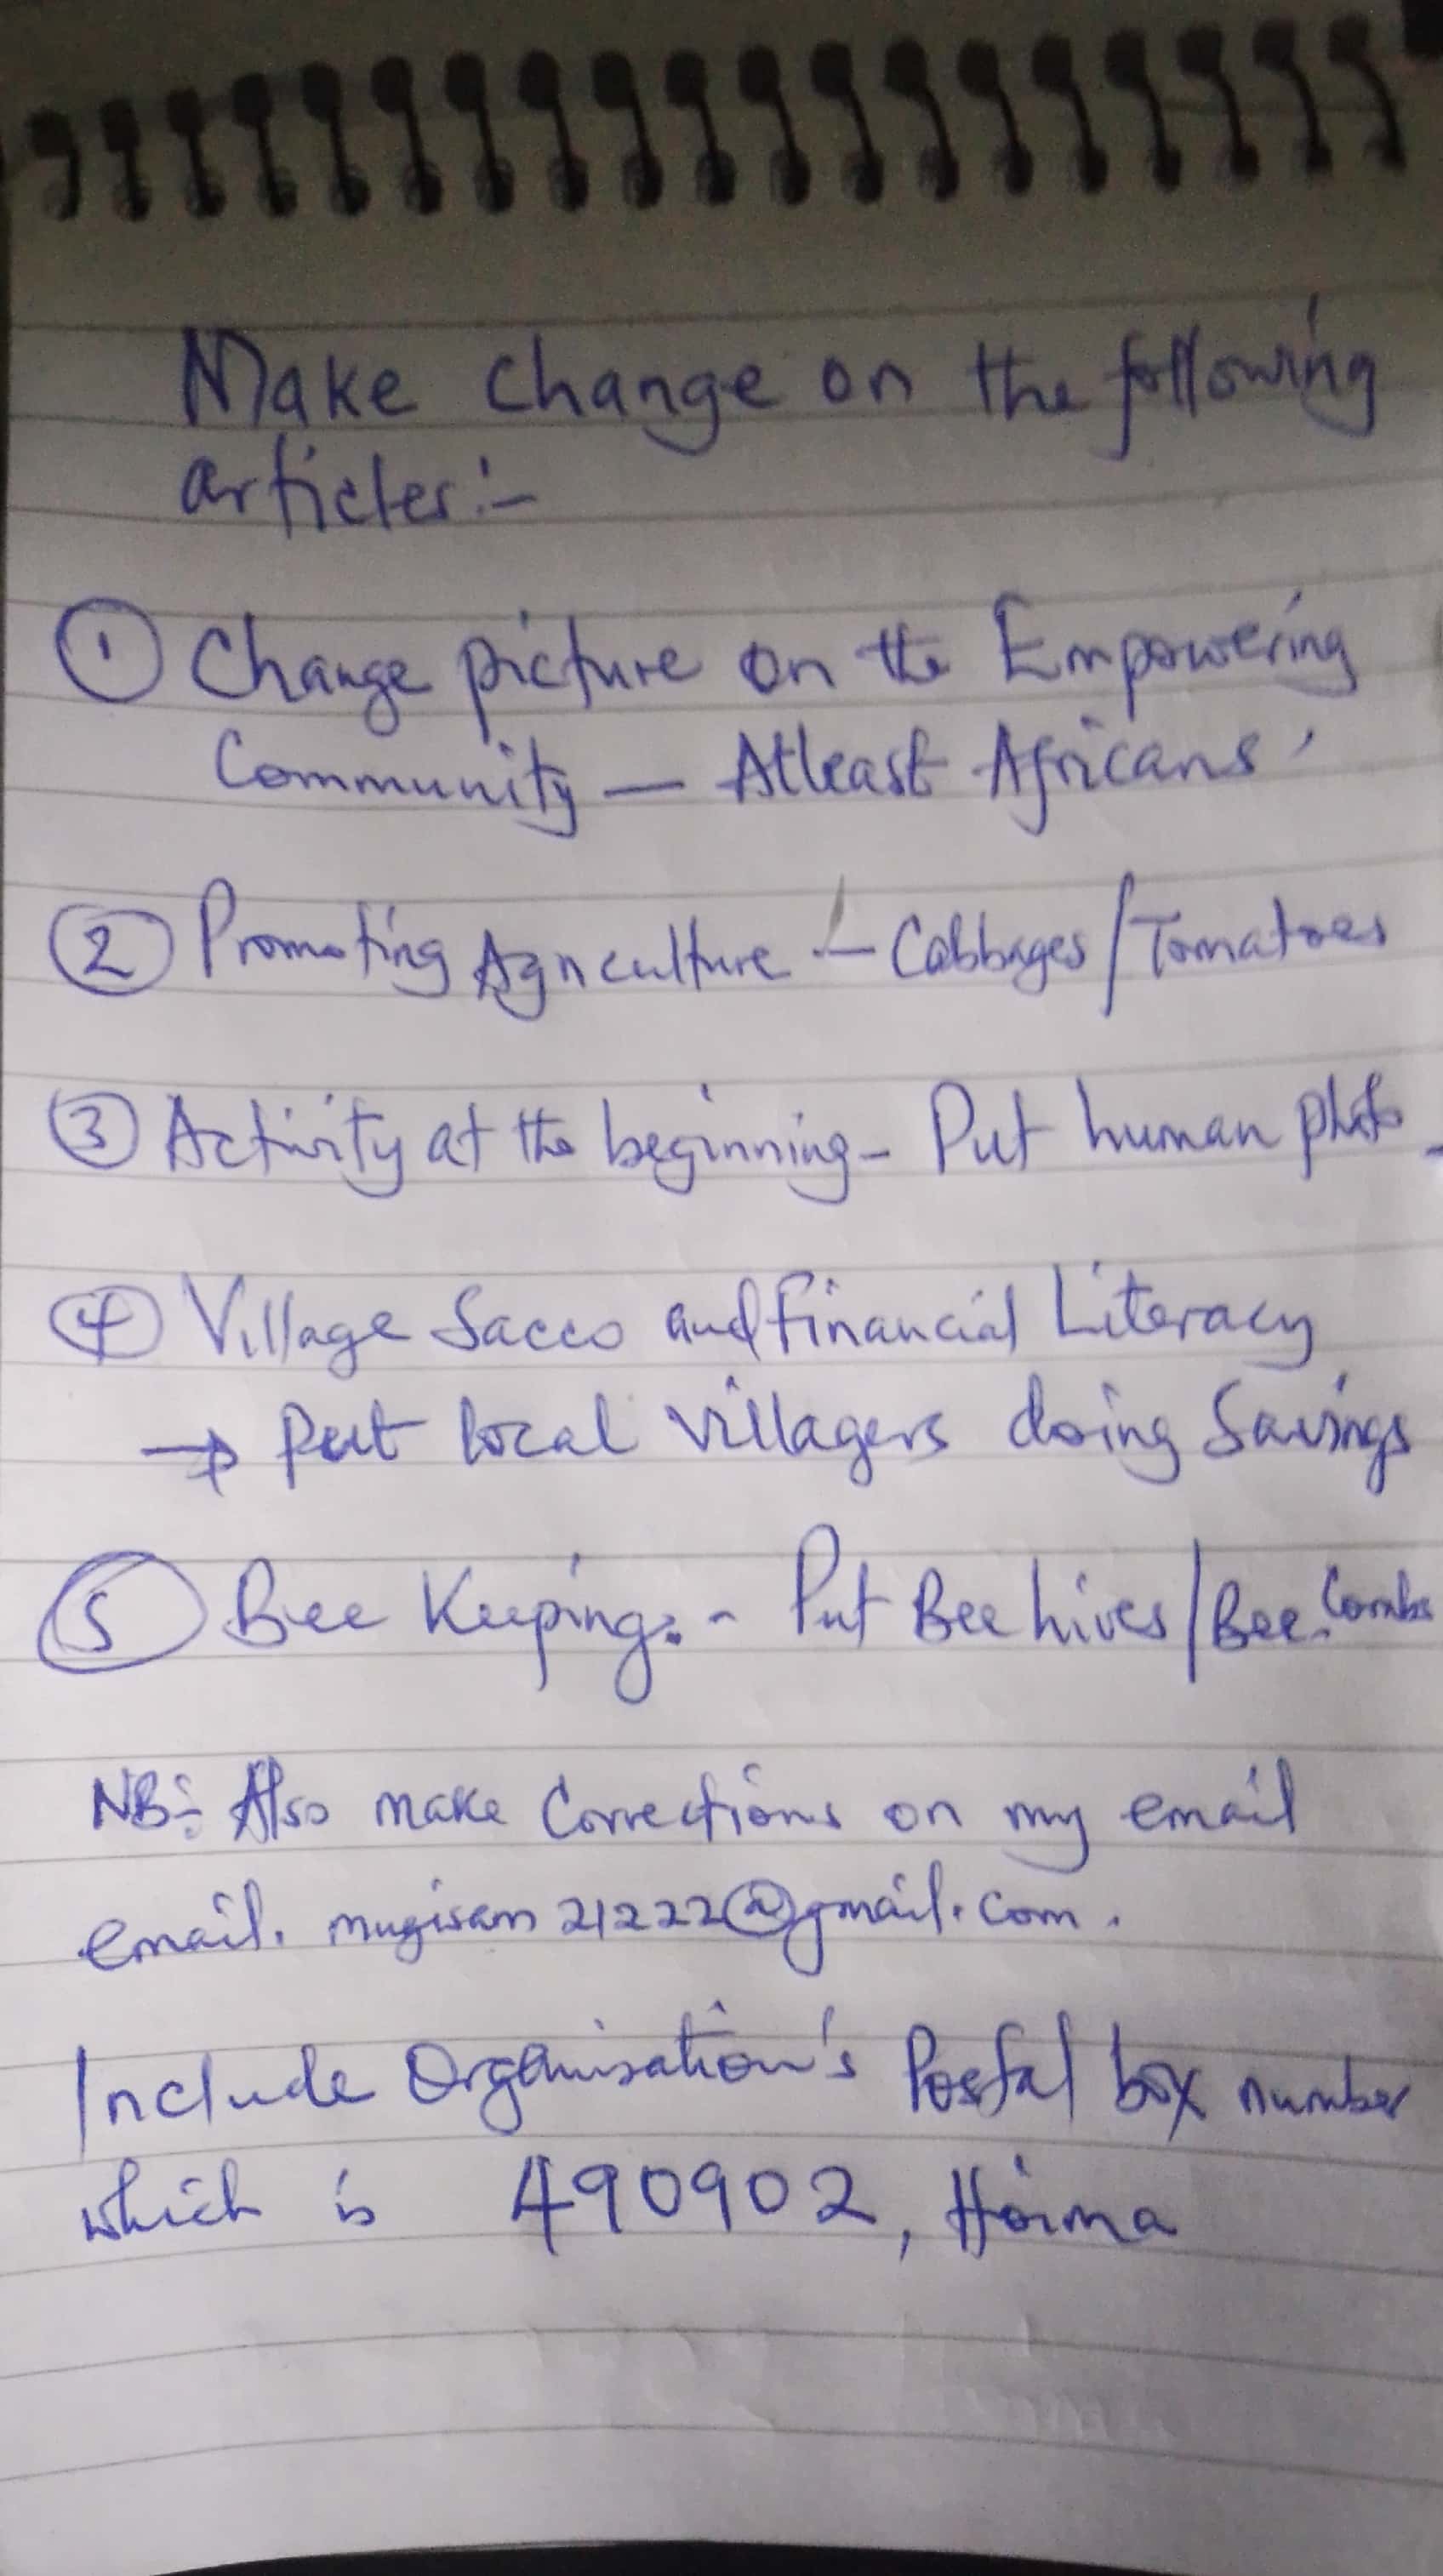 Make change on the following
articles:-
① Change picture on the Empowering
Community — Atleast Africans
② Promoting Agriculture — Cabbages/Tomatoes
③ Activity at the beginning - Put human photo
④ Village Sacco and Financial Literacy
→ Put local villagers doing Savings
⑤ Bee Keeping:- Put Bee hives/Bee Combs
NB:- Also make Corrections on my email
email. mugisam21222@gmail.com.
Include Organisation's Postal box number
which is 490902, Hoima